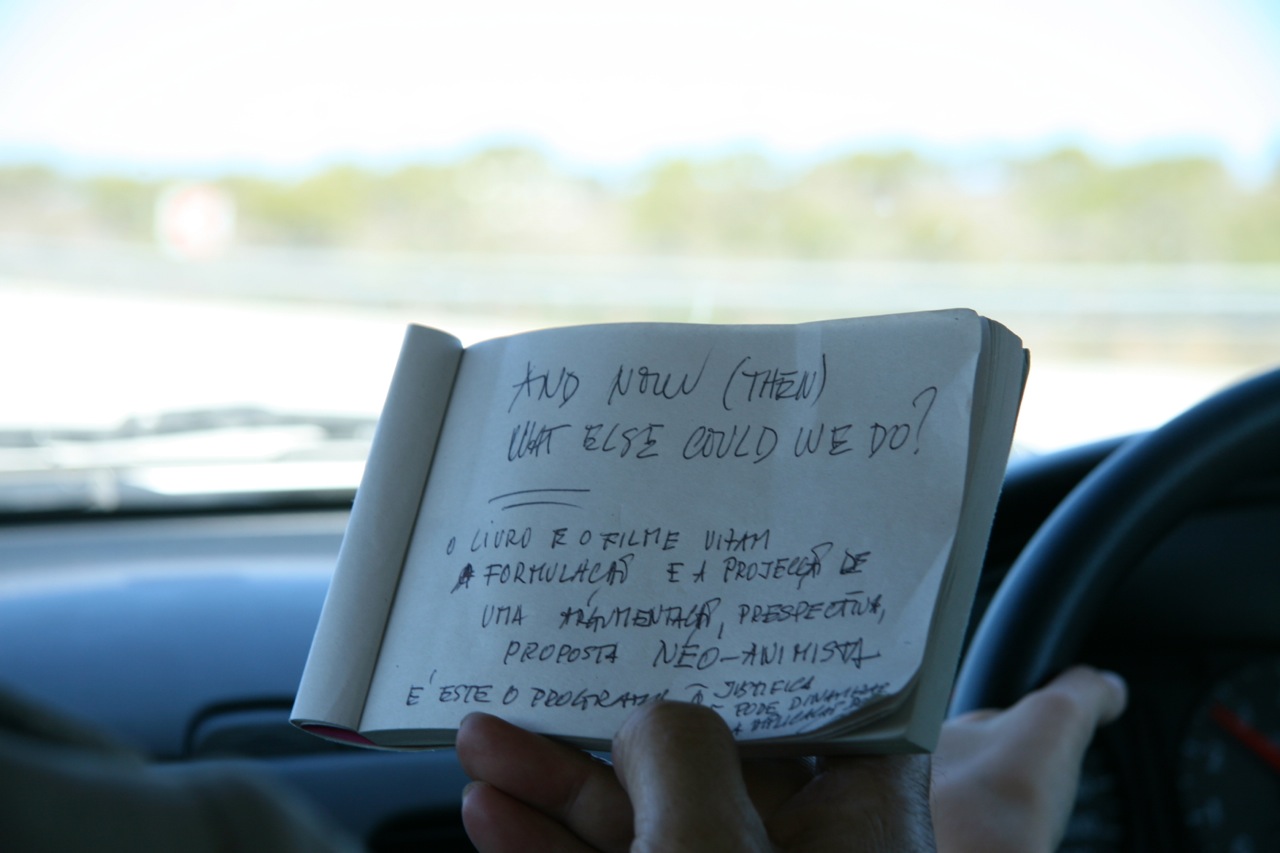 AND NOW (THEN)
WHAT ELSE COULD WE DO?
O LIVRO E O FILME VISAM
A FORMULAÇÃO E A PROJECÇÃO DE
UMA ARGUMENTAÇÃO, PRESPECTIVA,
PROPOSTA NEO-ANIMISTA
E' ESTE O PROGRAMA JUSTIFICA
PODE
A APLICAÇÃO